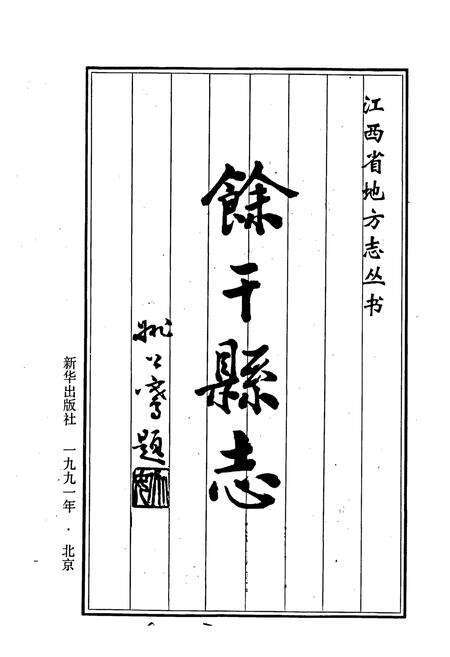 江西省地方志丛书
餘干縣志
姚公骞题
新华出版社 一九九一年·北京